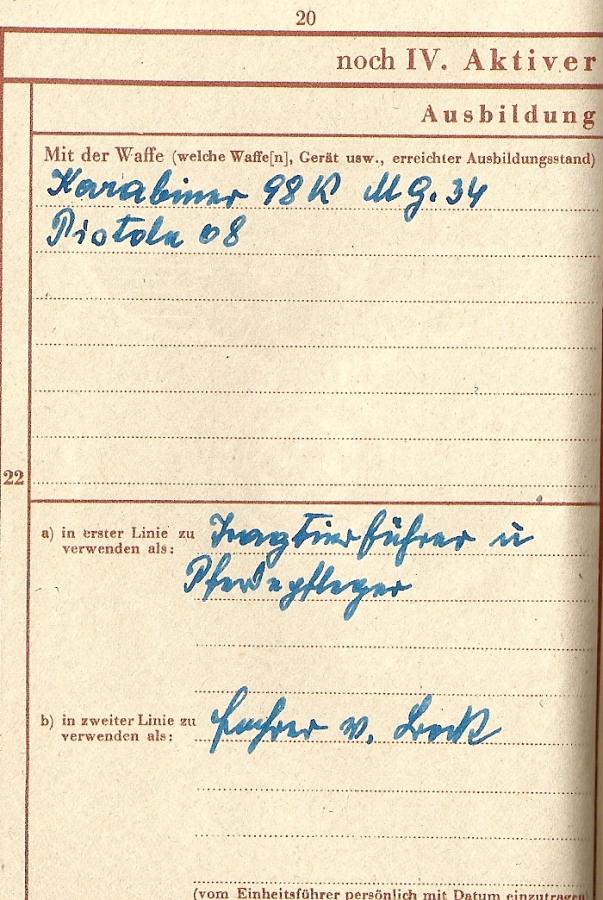 20
noch IV. Aktiver
Ausbildung
Mit der Waffe (welche Waffe[n], Gerät usw., erreichter Ausbildungsstand)
Karabiner 98 K M G. 34
Pistole 08
22
a) in erster Linie zu verwenden als: Tragtierführer u
Pferdepfleger
b) in zweiter Linie zu verwenden als: Fahrer v. Bock
(vom Einheitsführer persönlich mit Datum einzutragen)